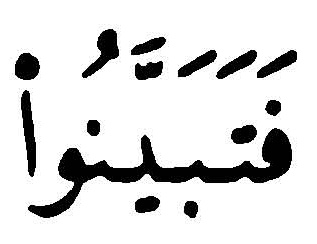 فَتَبَيَّنُواْ